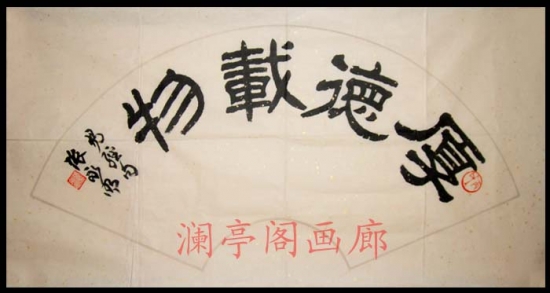 厚德載物
澜亭阁画廊